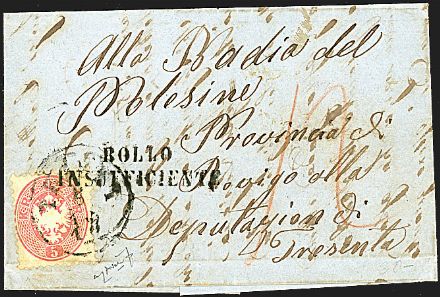 Alla Badia del
Polesine
Provincia di
BOLLO
INSUFFICIENTE
Rovigo alla
Deputazion di
Tresenta
5